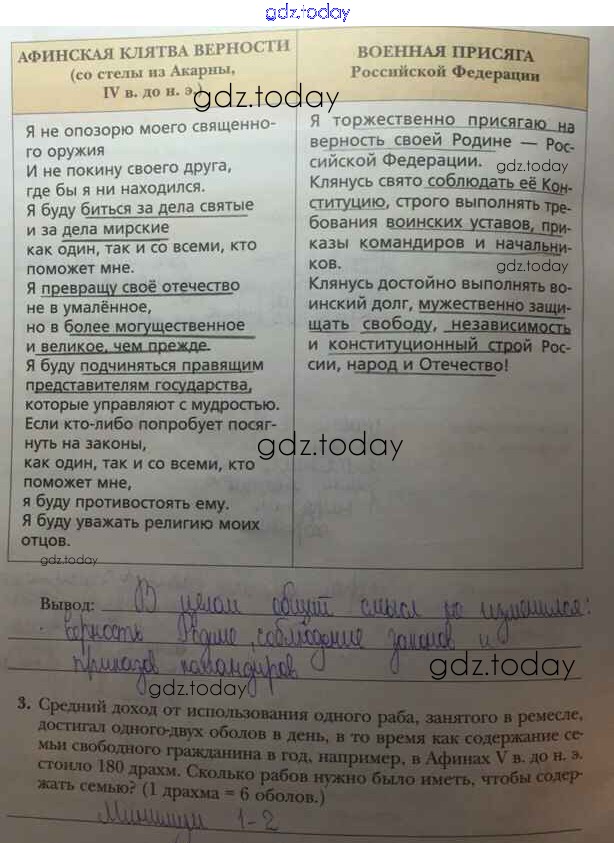 gdz.today
АФИНСКАЯ КЛЯТВА ВЕРНОСТИ
(со стелы из Акарны,
IV в. до н. э.)
gdz.today
Я не опозорю моего священно-
го оружия
И не покину своего друга,
где бы я ни находился.
Я буду биться за дела святые
и за дела мирские
как один, так и со всеми, кто
поможет мне.
Я превращу своё отечество
не в умалённое,
но в более могущественное
и великое, чем прежде.
Я буду подчиняться правящим
представителям государства,
которые управляют с мудростью.
Если кто-либо попробует посяг-
нуть на законы,
как один, так и со всеми, кто
поможет мне,
я буду противостоять ему.
Я буду уважать религию моих
отцов.
gdz.today
ВОЕННАЯ ПРИСЯГА
Российской Федерации
Я торжественно присягаю на
верность своей Родине — Рос-
сийской Федерации.
gdz.today
Клянусь свято соблюдать её Кон-
ституцию, строго выполнять тре-
бования воинских уставов, при-
казы командиров и начальни-
ков.
gdz.today
Клянусь достойно выполнять во-
инский долг, мужественно защи-
щать свободу, независимость
и конституционный строй Рос-
сии, народ и Отечество!
gdz.today
Вывод: В целом общий смысл не изменился:
верность Родине, соблюдение законов и
приказов командиров
gdz.today
gdz.today
3. Средний доход от использования одного раба, занятого в ремесле,
достигал одного-двух оболов в день, в то время как содержание се-
мьи свободного гражданина в год, например, в Афинах V в. до н. э.
стоило 180 драхм. Сколько рабов нужно было иметь, чтобы содер-
жать семью? (1 драхма = 6 оболов.)
Минимум 1-2